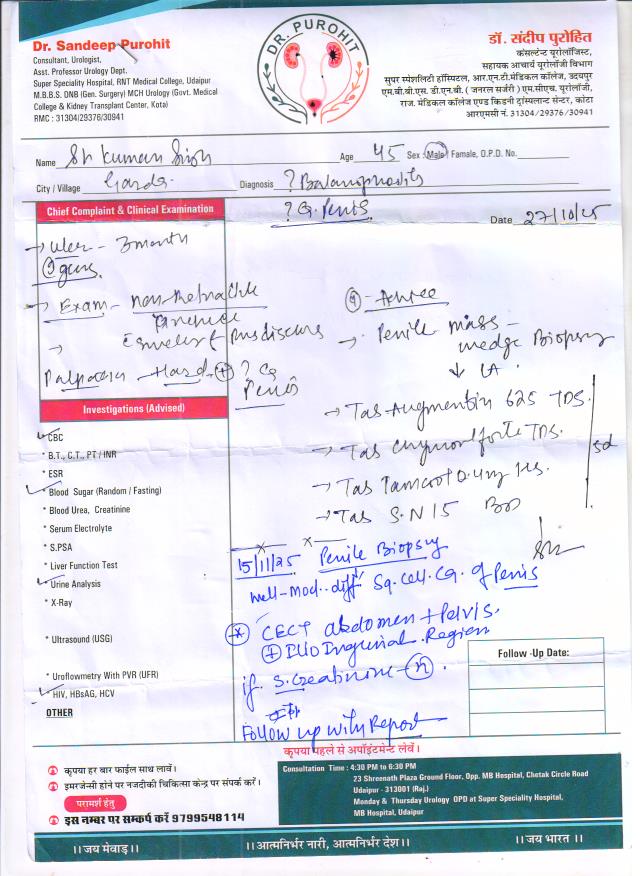 Dr. Sandeep Purohit
Consultant, Urologist,
Asst. Professor Urology Dept.
Super Speciality Hospital, RNT Medical College, Udaipur
M.B.B.S. DNB (Gen. Surgery) MCH Urology (Govt. Medical
College & Kidney Transplant Center, Kota)
RMC : 31304/29376/30941
DR. PUROHIT
डॉ. संदीप पुरोहित
कंसल्टेन्ट यूरोलॉजिस्ट,
सहायक आचार्य यूरोलॉजी विभाग
सुपर स्पेशलिटी हॉस्पिटल, आर.एन.टी.मेडिकल कॉलेज, उदयपुर
एम.बी.बी.एस. डी.एन.बी. ( जनरल सर्जरी ) एम.सीएच. यूरोलॉजी,
राज. मेडिकल कॉलेज एण्ड किडनी ट्रांसप्लान्ट सेन्टर, कोटा
आरएमसी नं. 31304/29376/30941
Name Sh Kuman Age 45 Sex : Male / Famale, O.P.D. No.
City / Village Diagnosis ? Balanoposthitis
? Ca. Penis
Chief Complaint & Clinical Examination
Date 27/10/25
→ Ulcer - 3 month
→ Exam - non-Retractile
→ Advice
→ Penile mass -
wedge Biopsy
↓ LA
Palpation - Hard (+) ? Ca
Penis
Investigations (Advised)
→ Tab Augmentin 625 TDS.
→ Tab Chymoral forte TDS.
→ Tab
→ Tab S.N 15 BD
5d
✓ CBC
* B.T., C.T., PT / INR
* ESR
✓ * Blood Sugar (Random / Fasting)
* Blood Urea, Creatinine
* Serum Electrolyte
* S.PSA
* Liver Function Test
✓ * Urine Analysis
* X-Ray
* Ultrasound (USG)
* Uroflowmetry With PVR (UFR)
✓ * HIV, HBsAG, HCV
OTHER
15/11/25 Penile Biopsy
well-Mod. diff Sq. Cell. Ca. of Penis
* CECT abdomen + Pelvis.
+ Ilio Inguinal Region
if S. Creatinine - n.
Follow up with Report
Follow -Up Date:
कृपया पहले से अपॉइंटमेन्ट लेवें।
कृपया हर बार फाईल साथ लावें।
इमरजेन्सी होने पर नजदीकी चिकित्सा केन्द्र पर संपर्क करें।
परामर्श हेतु
इस नम्बर पर सम्पर्क करें 9799548114
Consultation Time : 4:30 PM to 6:30 PM
23 Shreenath Plaza Ground Floor, Opp. MB Hospital, Chetak Circle Road
Udaipur - 313001 (Raj.)
Monday & Thursday Urology OPD at Super Speciality Hospital,
MB Hospital, Udaipur
।।जय मेवाड़।। ।।आत्मनिर्भर नारी, आत्मनिर्भर देश।। ।।जय भारत।।